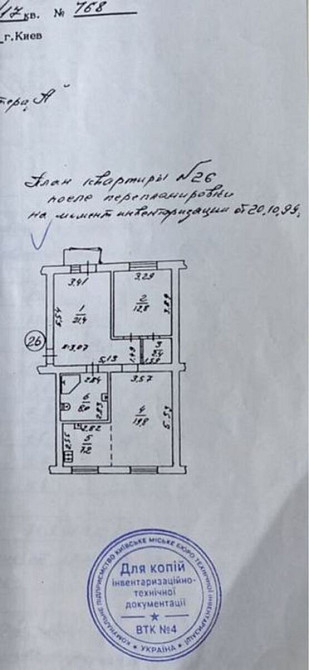 кв. № 768
г.Киев
План квартиры №26
после перепланировки
на момент инвентаризации от 20.10.99.
3.41
3.29
5.54
1
21.4
2
12.8
3.89
26
h-3.07
3
5.13
2.84
3.57
6
2.83
4
19.8
5.53
2.82
5
7.2
2.55
КОМУНАЛЬНЕ ПІДПРИЄМСТВО КИЇВСЬКЕ МІСЬКЕ БЮРО ТЕХНІЧНОЇ ІНВЕНТАРИЗАЦІЇ
Для копій
інвентаризаційно-
технічної
документації
ВТК №4
* УКРАЇНА *